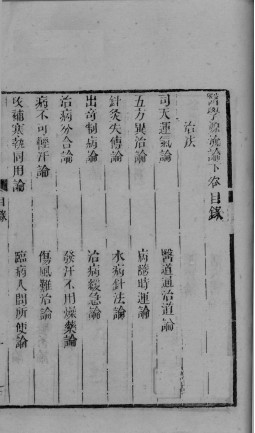 醫學源流論下卷目錄
治法
司天運氣論
醫道通治道論
五方異治論
病隨時運論
針灸失傳論
水病針法論
出奇制病論
治病緩急論
治病分合論
發汗不用燥藥論
病不可輕汗論
傷風難治論
攻補寒熱同用論
臨病人問所便論
目錄